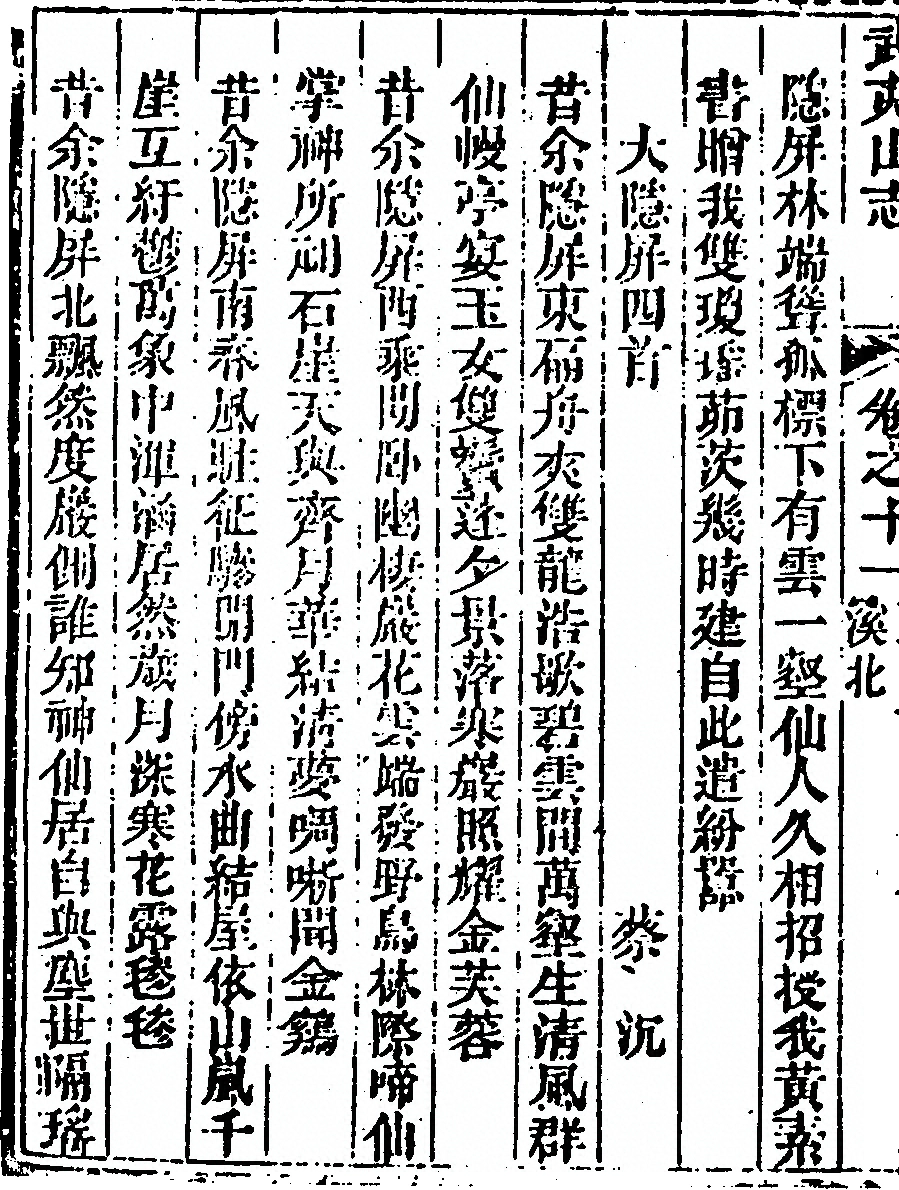 武夷山志 卷之十一 溪北
隱屏林端聳孤標下有雲一壑仙人久相招授我黃素
書贈我雙瓊瑤茆茨幾時建自此遣紛囂
大隱屏四首 蔡沉
昔余隱屏東扁舟夾雙龍浩歌碧雲間萬壑生清風群
仙幔亭宴玉女雙鬟迎夕景落寒巖照耀金芙蓉
昔余隱屏西乘閒臥幽棲巖花雲端發野鳥林際啼仙
掌神所刓石崖天與齊月華結清夢啁哳聞金鷄
昔余隱屏南春風駐征驂開門傍水曲結屋依山嵐千
崖互紆鬱萬象中渾涵居然歲月深寒花露毿毿
昔余隱屏北飄然度巖側誰知神仙居自與塵世隔瑤